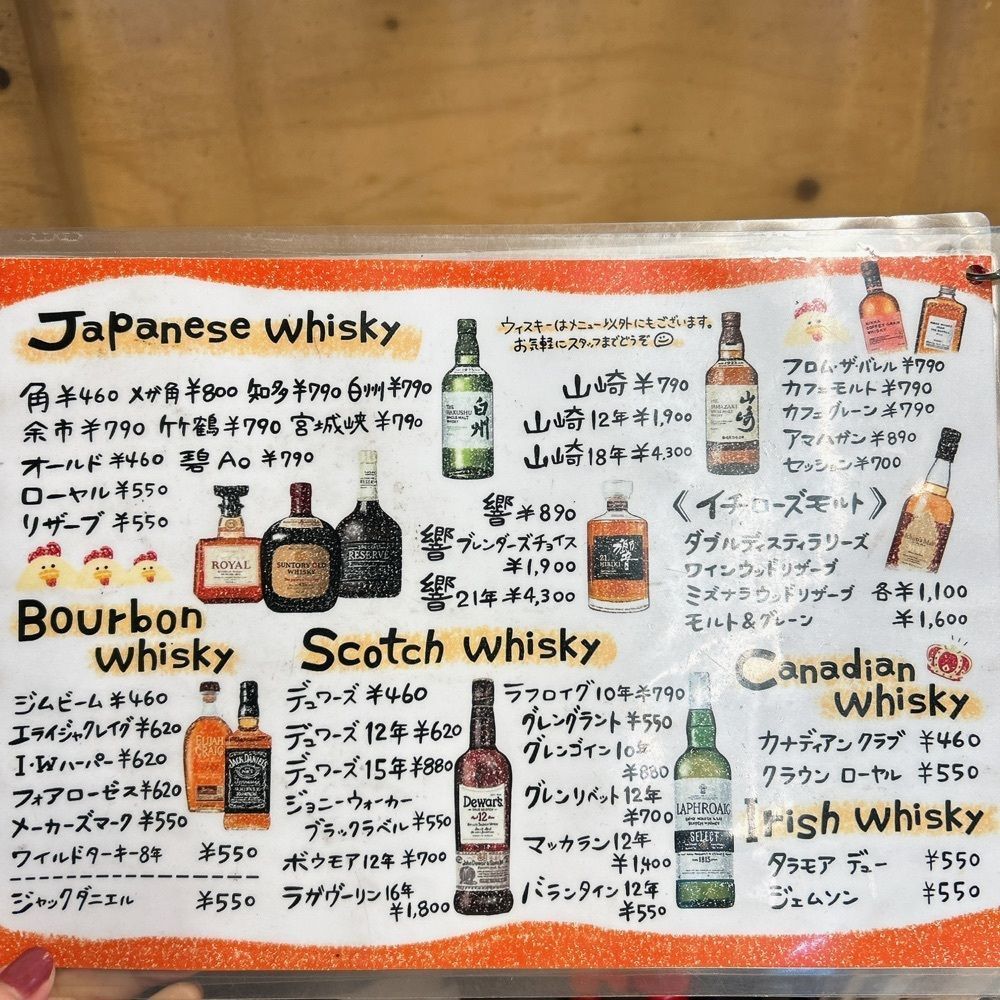 Japanese whisky
角 ¥460 メガ角 ¥800 知多 ¥790 白州 ¥790
余市 ¥790 竹鶴 ¥790 宮城峡 ¥790
オールド ¥460 碧Ao ¥790
ローヤル ¥550
リザーブ ¥550
ROYAL
SUNTORY OLD
WHISKY
RESERVE
白州
ウィスキーはメニュー以外にもございます。
お気軽にスタッフまでどうぞ
山崎 ¥790
山崎12年 ¥1,900
山崎18年 ¥4,300
山崎
響 ¥890
響 ブレンダーズチョイス
¥1,900
響 21年 ¥4,300
響
HIBIKI
フロム・ザ・バレル ¥790
カフェモルト ¥790
カフェグレーン ¥790
アマハガン ¥890
セッション ¥700
《イチローズモルト》
ダブルディスティラリーズ
ワインウッドリザーブ
ミズナラウッドリザーブ 各¥1,100
モルト&グレーン ¥1,600
Bourbon
whisky
ジムビーム ¥460
エライジャクレイグ ¥620
I・Wハーパー ¥620
フォアローゼス ¥620
メーカーズマーク ¥550
ワイルドターキー8年 ¥550
ジャックダニエル ¥550
ELIJAH
CRAIG
JACK DANIEL'S
Scotch whisky
デュワーズ ¥460
デュワーズ 12年 ¥620
デュワーズ 15年 ¥880
ジョニーウォーカー
ブラックラベル ¥550
ボウモア12年 ¥700
ラガヴーリン16年
¥1,800
Dewar's
12
ラフロイグ10年 ¥790
グレングラント ¥550
グレンゴイン10年
¥880
グレンリベット12年
¥700
マッカラン12年
¥1,400
バランタイン12年
¥550
LAPHROAIG
SELECT
1815
Canadian
whisky
カナディアンクラブ ¥460
クラウン ローヤル ¥550
Irish whisky
タラモア デュー ¥550
ジェムソン ¥550